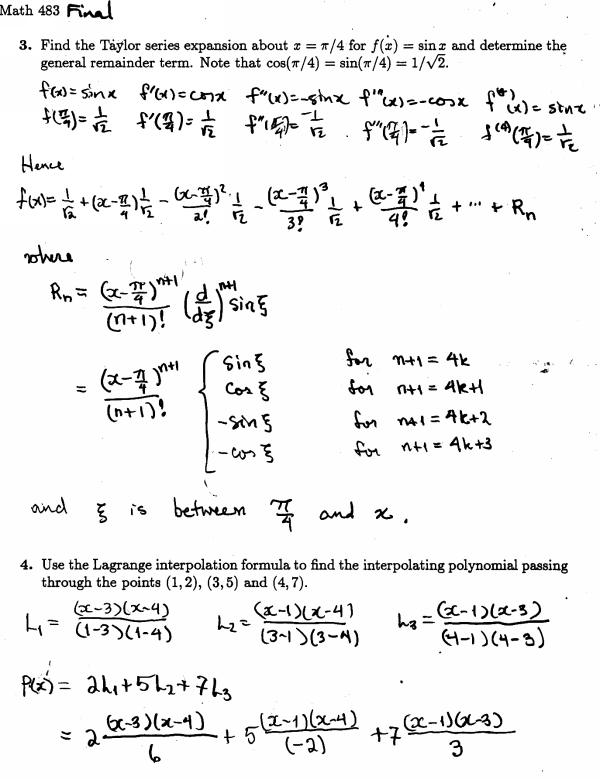 Math 483 Final
3. Find the Taylor series expansion about x = π/4 for f(x) = sin x and determine the
general remainder term. Note that cos(π/4) = sin(π/4) = 1/√2.
f(x) = sin x f'(x) = cos x f''(x) = -sin x f'''(x) = -cos x f⁽⁴⁾(x) = sin x
f(π/4) = 1/√2 f'(π/4) = 1/√2 f''(π/4) = -1/√2 f'''(π/4) = -1/√2 f⁽⁴⁾(π/4) = 1/√2
Hence
f(x) = 1/√2 + (x-π/4) 1/√2 - (x-π/4)²/2! · 1/√2 - (x-π/4)³/3! 1/√2 + (x-π/4)⁴/4! 1/√2 + ... + Rn
where
Rn = (x-π/4)^(n+1)/(n+1)! (d/dξ)^(n+1) sin ξ
= (x-π/4)^(n+1)/(n+1)! { sin ξ for n+1 = 4k
cos ξ for n+1 = 4k+1
-sin ξ for n+1 = 4k+2
-cos ξ for n+1 = 4k+3
and ξ is between π/4 and x.
4. Use the Lagrange interpolation formula to find the interpolating polynomial passing
through the points (1, 2), (3, 5) and (4, 7).
L₁ = (x-3)(x-4)/(1-3)(1-4) L₂ = (x-1)(x-4)/(3-1)(3-4) L₃ = (x-1)(x-3)/(4-1)(4-3)
p(x) = 2L₁ + 5L₂ + 7L₃
= 2 (x-3)(x-4)/6 + 5 (x-1)(x-4)/(-2) + 7 (x-1)(x-3)/3